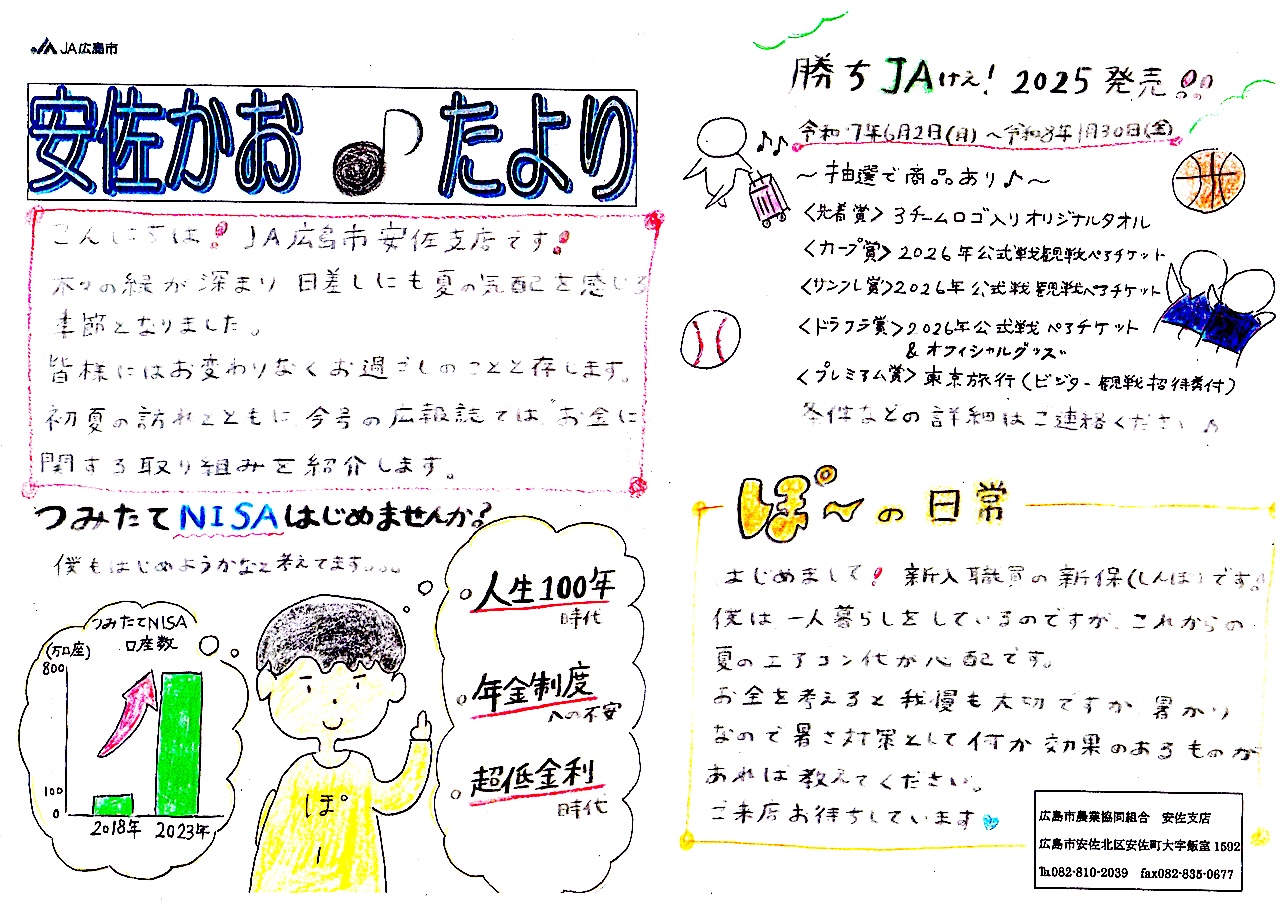 JA広島市
安佐かお♪たより
こんにちは！JA広島市安佐支店です！
木々の緑が深まり日差しにも夏の気配を感じる
季節となりました。
皆様にはお変わりなくお過ごしのことと存します。
初夏の訪れとともに今号の広報誌では"お金に
関する取り組みを紹介します。
つみたてNISAはじめませんか?
僕もはじめようかなと考えてます。。。
つみたてNISA
口座数
(万口座)
800
100
0
2018年 2023年
ぽー
人生100年
時代
年金制度
への不安
超低金利
時代
勝ちJAけえ! 2025 発売!!
令和7年6月2日(月)～令和8年1月30日(金)
～抽選で商品あり♪～
<先着賞> 3チームロゴ入りオリジナルタオル
<カープ賞> 2026年公式戦観戦ペアチケット
<サンフレ賞> 2026年公式戦観戦ペアチケット
<ドラフラ賞> 2026年公式戦ペアチケット
& オフィシャルグッズ
<プレミアム賞> 東京旅行(ビジター観戦招待券付)
条件などの詳細はご連絡ください♪
ぽ～の日常
はじめまして！新入職員の新保(しんぽ)です。
僕は一人暮らしをしているのですが、これからの
夏のエアコン代が心配です。
お金を考えると我慢も大切ですが、暑がり
なので暑さ対策として何か効果のあるものが
あれば教えてください。
ご来店お待ちしています
広島市農業協同組合 安佐支店
広島市安佐北区安佐町大字飯室1592
℡082-810-2039 fax082-835-0677